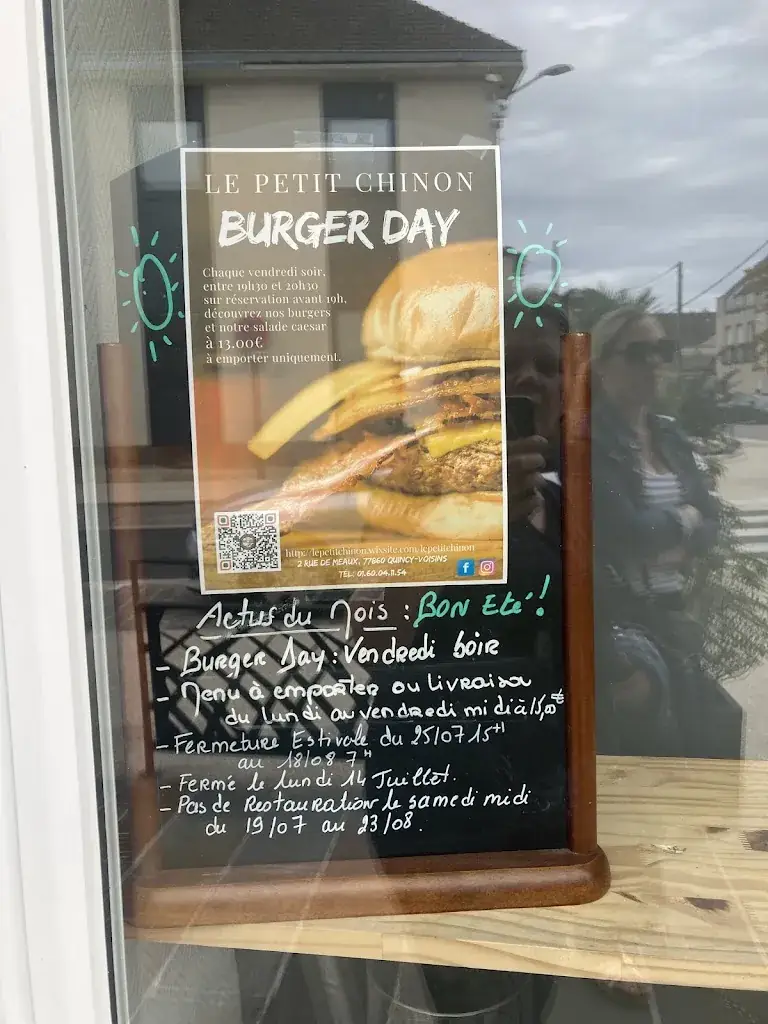 LE PETIT CHINON
BURGER DAY
Chaque vendredi soir,
entre 19h30 et 20h30
sur réservation avant 19h,
découvrez nos burgers
et notre salade caesar
à 13.00€
à emporter uniquement.
http://lepetitchinon.wixsite.com/lepetitchinon
2 RUE DE MEAUX, 77860 QUINCY-VOISINS
TEL: 01.60.04.11.54
Actus du Mois : BON Eté !
- Burger Day : Vendredi soir
- Menu à emporter ou livraison
du lundi au vendredi midi à 15,00€
- Fermeture Estivale du 25/07 15H
au 18/08 7H
- Fermé le lundi 14 Juillet.
- Pas de Restauration le samedi midi
du 19/07 au 23/08.